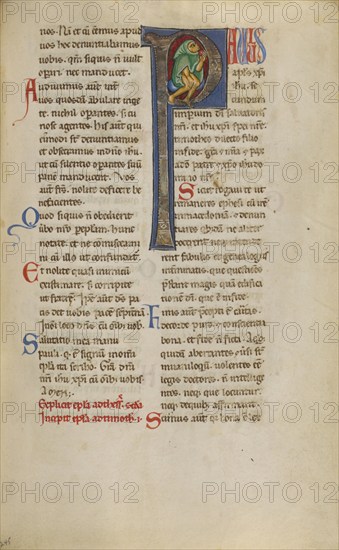 nos. Nā et cū eēmus apud
uos hoc denuntiabamus
uobis. qm̄ siquis n̄ uult
opari nec manducet.
Audiuimus aūt int̄
uos quosdā abulare inqie
te. nichil opantes. sī cu
riose agentes. his aūt qui
eiusmodi sī denuntiamus
et obsecramus in dn̄o ihu
ut cū silentio opantes suū
panē manducent. Vos
aūt frs̄. nolite deficere be
nefacientes.
Quod siquis n̄ obedierit
ūbo nr̄o p eplam. hunc
notate. et ne cōmisceam
ni cū illo ut confundat̄.
Et nolite quasi inimicū
existimare. sī corripite
ut fratrē. Ipse aūt ds̄ pa
cis det uobis pacē sempit̄nā
in oi loco. dns̄ cū oībus uob.
Salutatio mea manu
pauli. q̄ ē signū in omi
epla ita scribo. Grā dn̄i
nr̄i ihu xp̄i cū oībus uobis.
Amen.
Explicit epla ad thess̄. scda
Incipit epla ad timoth. i.
PAULUS
apls xp̄i
ihu. se
cundum
imperium dī saluatoris
nr̄i. et ihu xp̄i spei nr̄e.
timotheo dilecto filio
in fide. grā. misc̄dia.
pax a dō patre. et xp̄o ihu dn̄o
nr̄o.
Sicut rogaui te ut
remaneres ephesi cū irē
in macedoniā. ut denun
tiares quibdā ne alit̄
docerent. neque intende
rent fabulis et genealogiis
int̄minatis. que questiones
prestant magis quā edifica
tionem dī. que ē in fide.
Finis aūt precepti ē caritas
de corde puro. et conscientia
bona. et fide n̄ ficta. A qb;
quidā aberrantes cōuersi sī
in uaniloquiū. uolentes eē
legis doctores. n̄ intellige
ntes. neq; que locuntur.
neq; de quibus affirmant.
Scimus aūt qa bona ē lex
PHOTO12